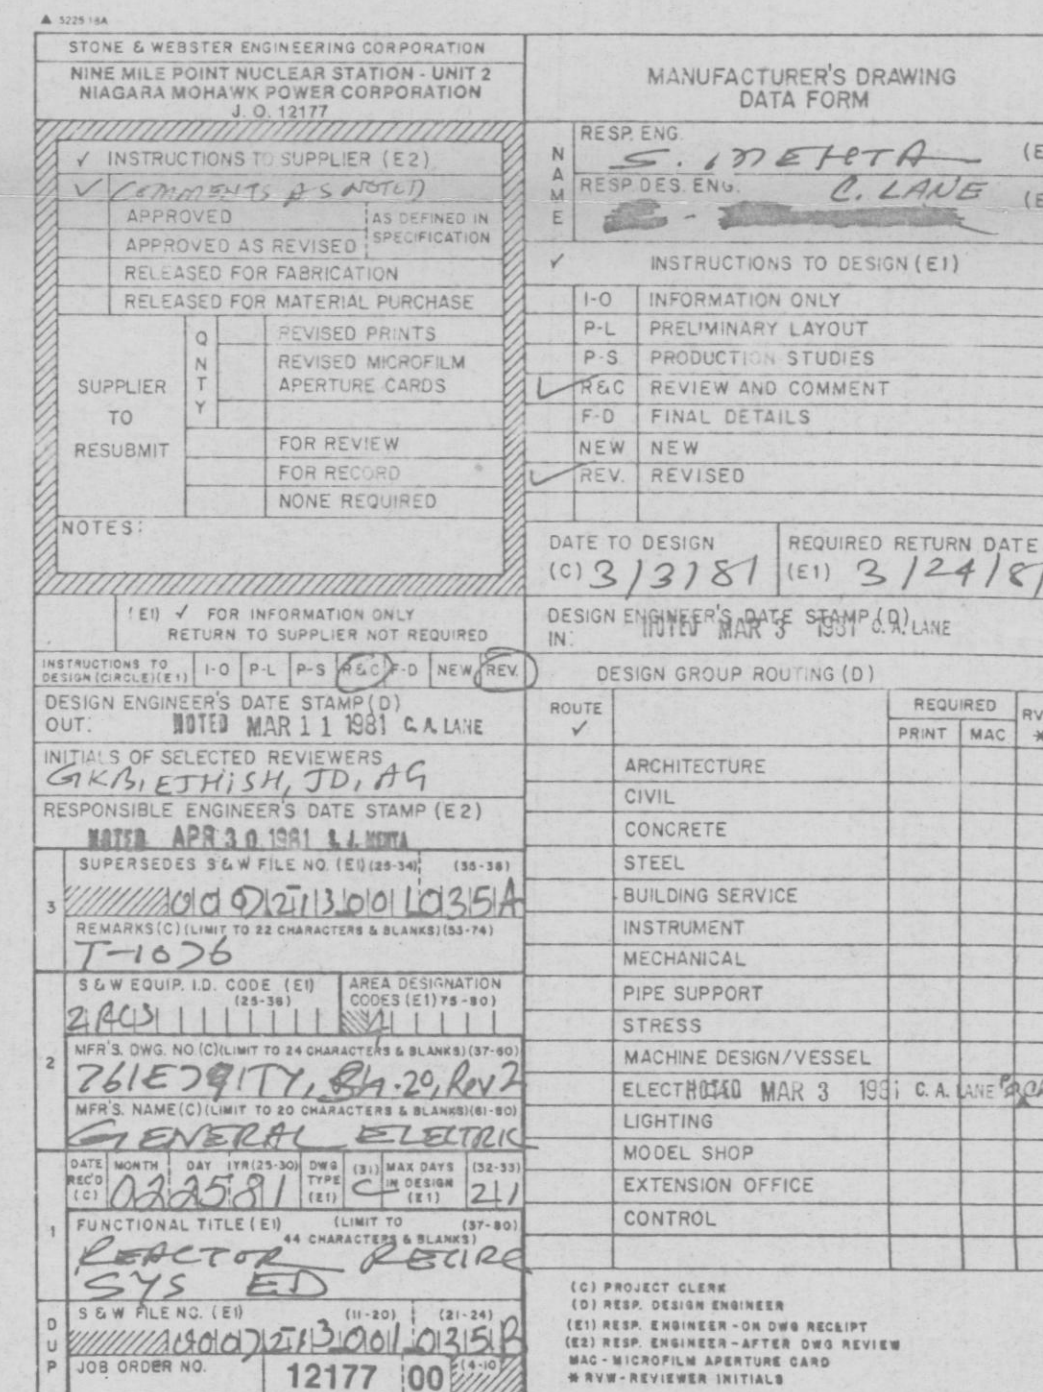 ▲ 5225 18A
STONE & WEBSTER ENGINEERING CORPORATION
NINE MILE POINT NUCLEAR STATION - UNIT 2
NIAGARA MOHAWK POWER CORPORATION
J. O. 12177
✓ INSTRUCTIONS TO SUPPLIER (E2)
✓ COMMENTS AS NOTED
APPROVED
APPROVED AS REVISED
AS DEFINED IN
SPECIFICATION
RELEASED FOR FABRICATION
RELEASED FOR MATERIAL PURCHASE
SUPPLIER
TO
RESUBMIT
QNTY
REVISED PRINTS
REVISED MICROFILM
APERTURE CARDS
FOR REVIEW
FOR RECORD
NONE REQUIRED
NOTES:
(E1) ✓ FOR INFORMATION ONLY
RETURN TO SUPPLIER NOT REQUIRED
INSTRUCTIONS TO
DESIGN (CIRCLE)(E1)
I-O P-L P-S R&C F-D NEW REV.
DESIGN ENGINEER'S DATE STAMP(D)
OUT: NOTED MAR 11 1981 C. A. LANE
INITIALS OF SELECTED REVIEWERS
GKB, EJH, SH, JD, AG
RESPONSIBLE ENGINEER'S DATE STAMP (E2)
NOTED APR 30 1981 S. J. MEHTA
3
SUPERSEDES S&W FILE NO. (E1)(25-34) (35-38)
035A
REMARKS(C)(LIMIT TO 22 CHARACTERS & BLANKS)(53-74)
T-1076
2
S&W EQUIP. I.D. CODE (E1)
(25-36)
2RCS
AREA DESIGNATION
CODES (E1) 75-80)
MFR'S. DWG. NO (C)(LIMIT TO 24 CHARACTERS & BLANKS)(37-60)
761E791TY, Sh. 20, Rev 2
MFR'S. NAME(C)(LIMIT TO 20 CHARACTERS & BLANKS)(61-80)
GENERAL ELECTRIC
1
DATE
REC'D
(C)
MONTH DAY YR(25-30)
022581
DWG
TYPE
(E1)
(31)
C
MAX DAYS
IN DESIGN
(E1)
(32-33)
21
FUNCTIONAL TITLE (E1) (LIMIT TO (37-80)
44 CHARACTERS & BLANKS)
REACTOR RECIRC
SYS ED
DUP
S&W FILE NO. (E1) (11-20) (21-24)
035B
JOB ORDER NO. 12177 00 (4-10)
MANUFACTURER'S DRAWING
DATA FORM
NAME
RESP. ENG.
S. MEHTA
RESP. DES. ENG.
C. LANE
✓ INSTRUCTIONS TO DESIGN (E1)
I-O INFORMATION ONLY
P-L PRELIMINARY LAYOUT
P-S PRODUCTION STUDIES
✓ R&C REVIEW AND COMMENT
F-D FINAL DETAILS
NEW NEW
✓ REV. REVISED
DATE TO DESIGN
(C) 3/3/81
REQUIRED RETURN DATE
(E1) 3/24/8
DESIGN ENGINEER'S DATE STAMP (D)
IN: NOTED MAR 3 1981 C. A. LANE
DESIGN GROUP ROUTING (D)
ROUTE
✓
REQUIRED
PRINT MAC
RV
*
ARCHITECTURE
CIVIL
CONCRETE
STEEL
BUILDING SERVICE
INSTRUMENT
MECHANICAL
PIPE SUPPORT
STRESS
MACHINE DESIGN/VESSEL
NOTED MAR 3 1981 C. A. LANE
LIGHTING
MODEL SHOP
EXTENSION OFFICE
CONTROL
(C) PROJECT CLERK
(D) RESP. DESIGN ENGINEER
(E1) RESP. ENGINEER-ON DWG RECEIPT
(E2) RESP. ENGINEER-AFTER DWG REVIEW
MAC - MICROFILM APERTURE CARD
* RVW-REVIEWER INITIALS